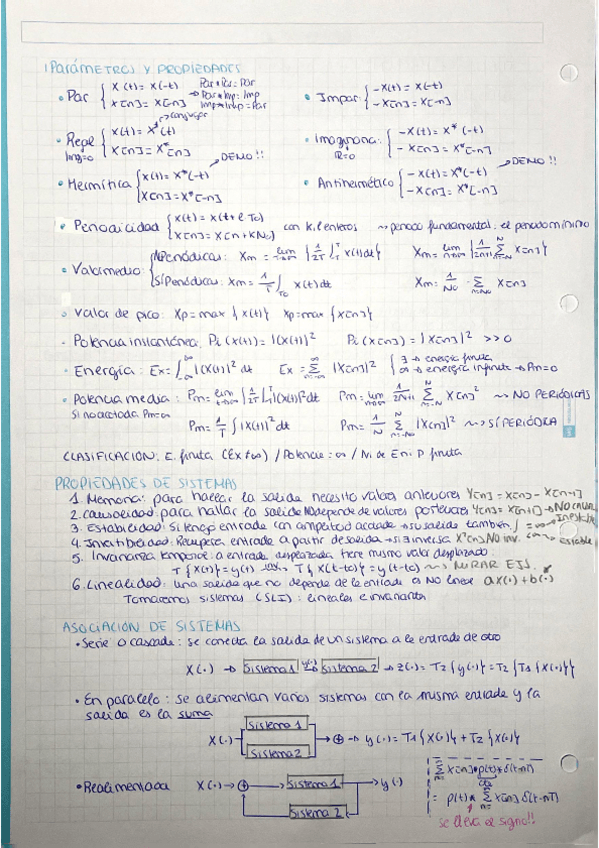 Parámetros y PROPIEDADES
• Par { x(t) = x(-t)
x[n] = x[-n]
Par * Par = Par
Par * Imp = Imp
Imp * Imp = Par
• Impar { -x(t) = x(-t)
-x[n] = x[-n]
• Real { x(t) = x*(t)
Img=0 x[n] = x*[n]
conjugar
• Imaginaria { -x(t) = x*(-t)
R=0 -x[n] = x*[-n]
• Hermítica { x(t) = x*(-t)
x[n] = x*[-n]
→ DEMO!!
• Antihermético { -x(t) = x*(-t)
-x[n] = x*[-n]
→ DEMO!!
• Periodicidad { x(t) = x(t + l·T0)
x[n] = x[n + kN0]
con k, l enteros ↝ periodo fundamental: el periodo mínimo
• Valor medio { No Periódicas: Xm = lim | 1/2T ∫ x(t)dt | Xm = lim | 1/2n+1 Σ x[n] |
Sí Periódicas: Xm = 1/T ∫T0 x(t)dt Xm = 1/N0 · Σ x[n]
• Valor de pico: Xp = max {x(t)} Xp = max {x[n]}
· Potencia instantánea, Pi(x(t)) = |(x(t)|² Pi(x[n]) = |x[n]|² >> 0
· Energía: Ex = ∫ |(x(t)|² dt Ex = Σ |x[n]|² { ∃ → energía finita
∞ → energía infinita → Pm=0
• Potencia media: Pm = lim | 1/2T ∫ |(x(t)|² dt Pm = lim 1/2N+1 Σ x[n]² ↝ NO PERIÓDICAS
Si no acotada Pm=∞
Pm = 1/T ∫ |x(t)|² dt Pm = 1/N Σ |x[n]|² ↝ SÍ PERIÓDICA
CLASIFICACIÓN: E. finita (Ex≠∞) / Potencia: ∞ / Ni de E ni P finita
PROPIEDADES DE SISTEMAS
1. Memoria: para hallar la salida necesito valores anteriores y[n] = x[n] - x[n-1]
2. Causalidad: para hallar la salida NO depende de valores posteriores y[n] = x[n+1] → NO CAUSAL
3. Estabilidad: Si tengo entrada con amplitud acotada → su salida también, ∫ = ∞ → Inestable
4. Invertibilidad: Recupera entrada a partir de salida → si inversa x²[n] No inv. → estable
5. Invarianza temporal: a entrada desplazada tiene mismo valor desplazado.
T{x(t)} = y(t) → T{x(t-t0)} = y(t-t0) ↝ MIRAR EJS.
6. Linealidad: una salida que no depende de la entrada es No lineal ax(·)+b(·)
Tomaremos sistemas (SLI): lineales e invariantes
ASOCIACIÓN DE SISTEMAS
• Serie o cascada: se conecta la salida de un sistema a la entrada de otro
x(·) → Sistema 1 y(·) Sistema 2 → z(·) = T2{y(·)} = T2{T1{x(·)}}
• En paralelo: se alimentan varios sistemas con la misma entrada y la
salida es la suma
Sistema 1
x(·) ⊕ → y(·) = T1{x(·)} + T2{x(·)}
Sistema 2
• Realimentada x(·) → ⊕ → Sistema 1 → y(·)
Sistema 2
Σ x[n] p(t) * δ(t-nT)
= p(t) * Σ x[n] δ(t-nT)
se lleva el signo!!